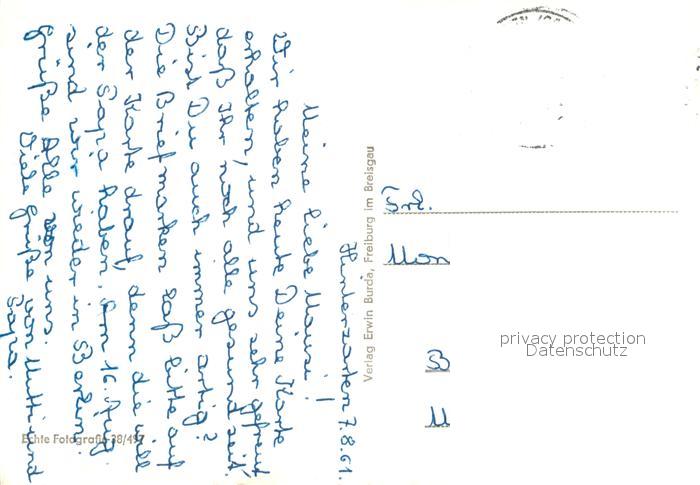 Hinterzarten 7.8.61.
Meine liebe Mausi!
Wir haben heute Deine Karte
erhalten, und uns sehr gefreut
daß Ihr noch alle gesund seit.
Bist Du auch immer artig?
Die Briefmarken laß bitte auf
der Karte drauf, denn die will
der Papa haben. Am 16. Aug.
sind wir wieder in Berlin.
Grüße Alle von uns.
Viele Grüße von Mutti und
Papa.
Echte Fotografie 38/497
Verlag Erwin Burda, Freiburg im Breisgau
Frl.
Mon
B
U
privacy protection
Datenschutz